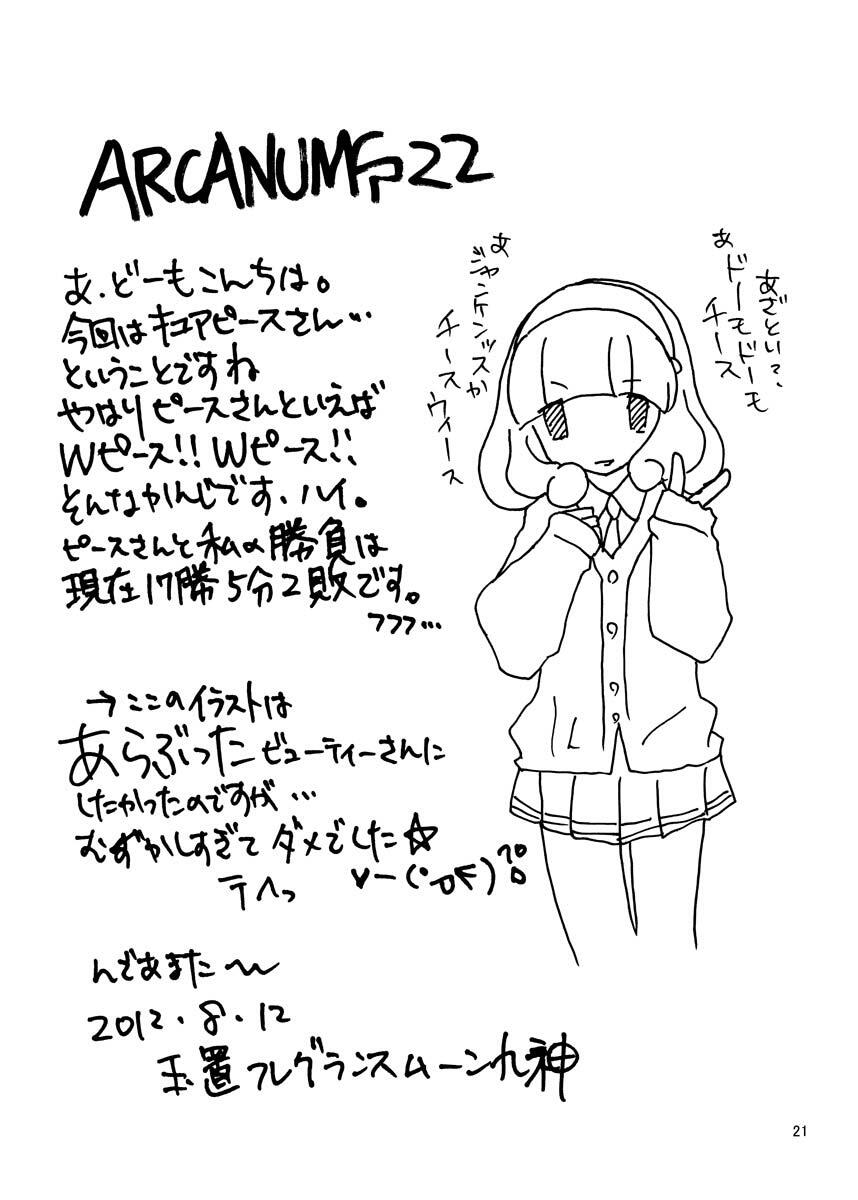 ARCANUMS 22
あ、どーもこんちは。
今回はキュアピースさん…
ということですね
やはりピースさんといえば
Wピース!! Wピース!!
そんなかんじです、ハイ。
ピースさんと私の勝負は
現在17勝5分2敗です。
フフフ…
→ここのイラストは
あらぶったビューティーさんに
したかったのですが…
むずかしすぎてダメでした☆
テヘっ
んであまた〜
2012.8.12
玉置フレグランスムーン九神
あざとい?、
あ
ドーモドーモ
チース
あ
ジャンケンッスか
チース
ウィース
21